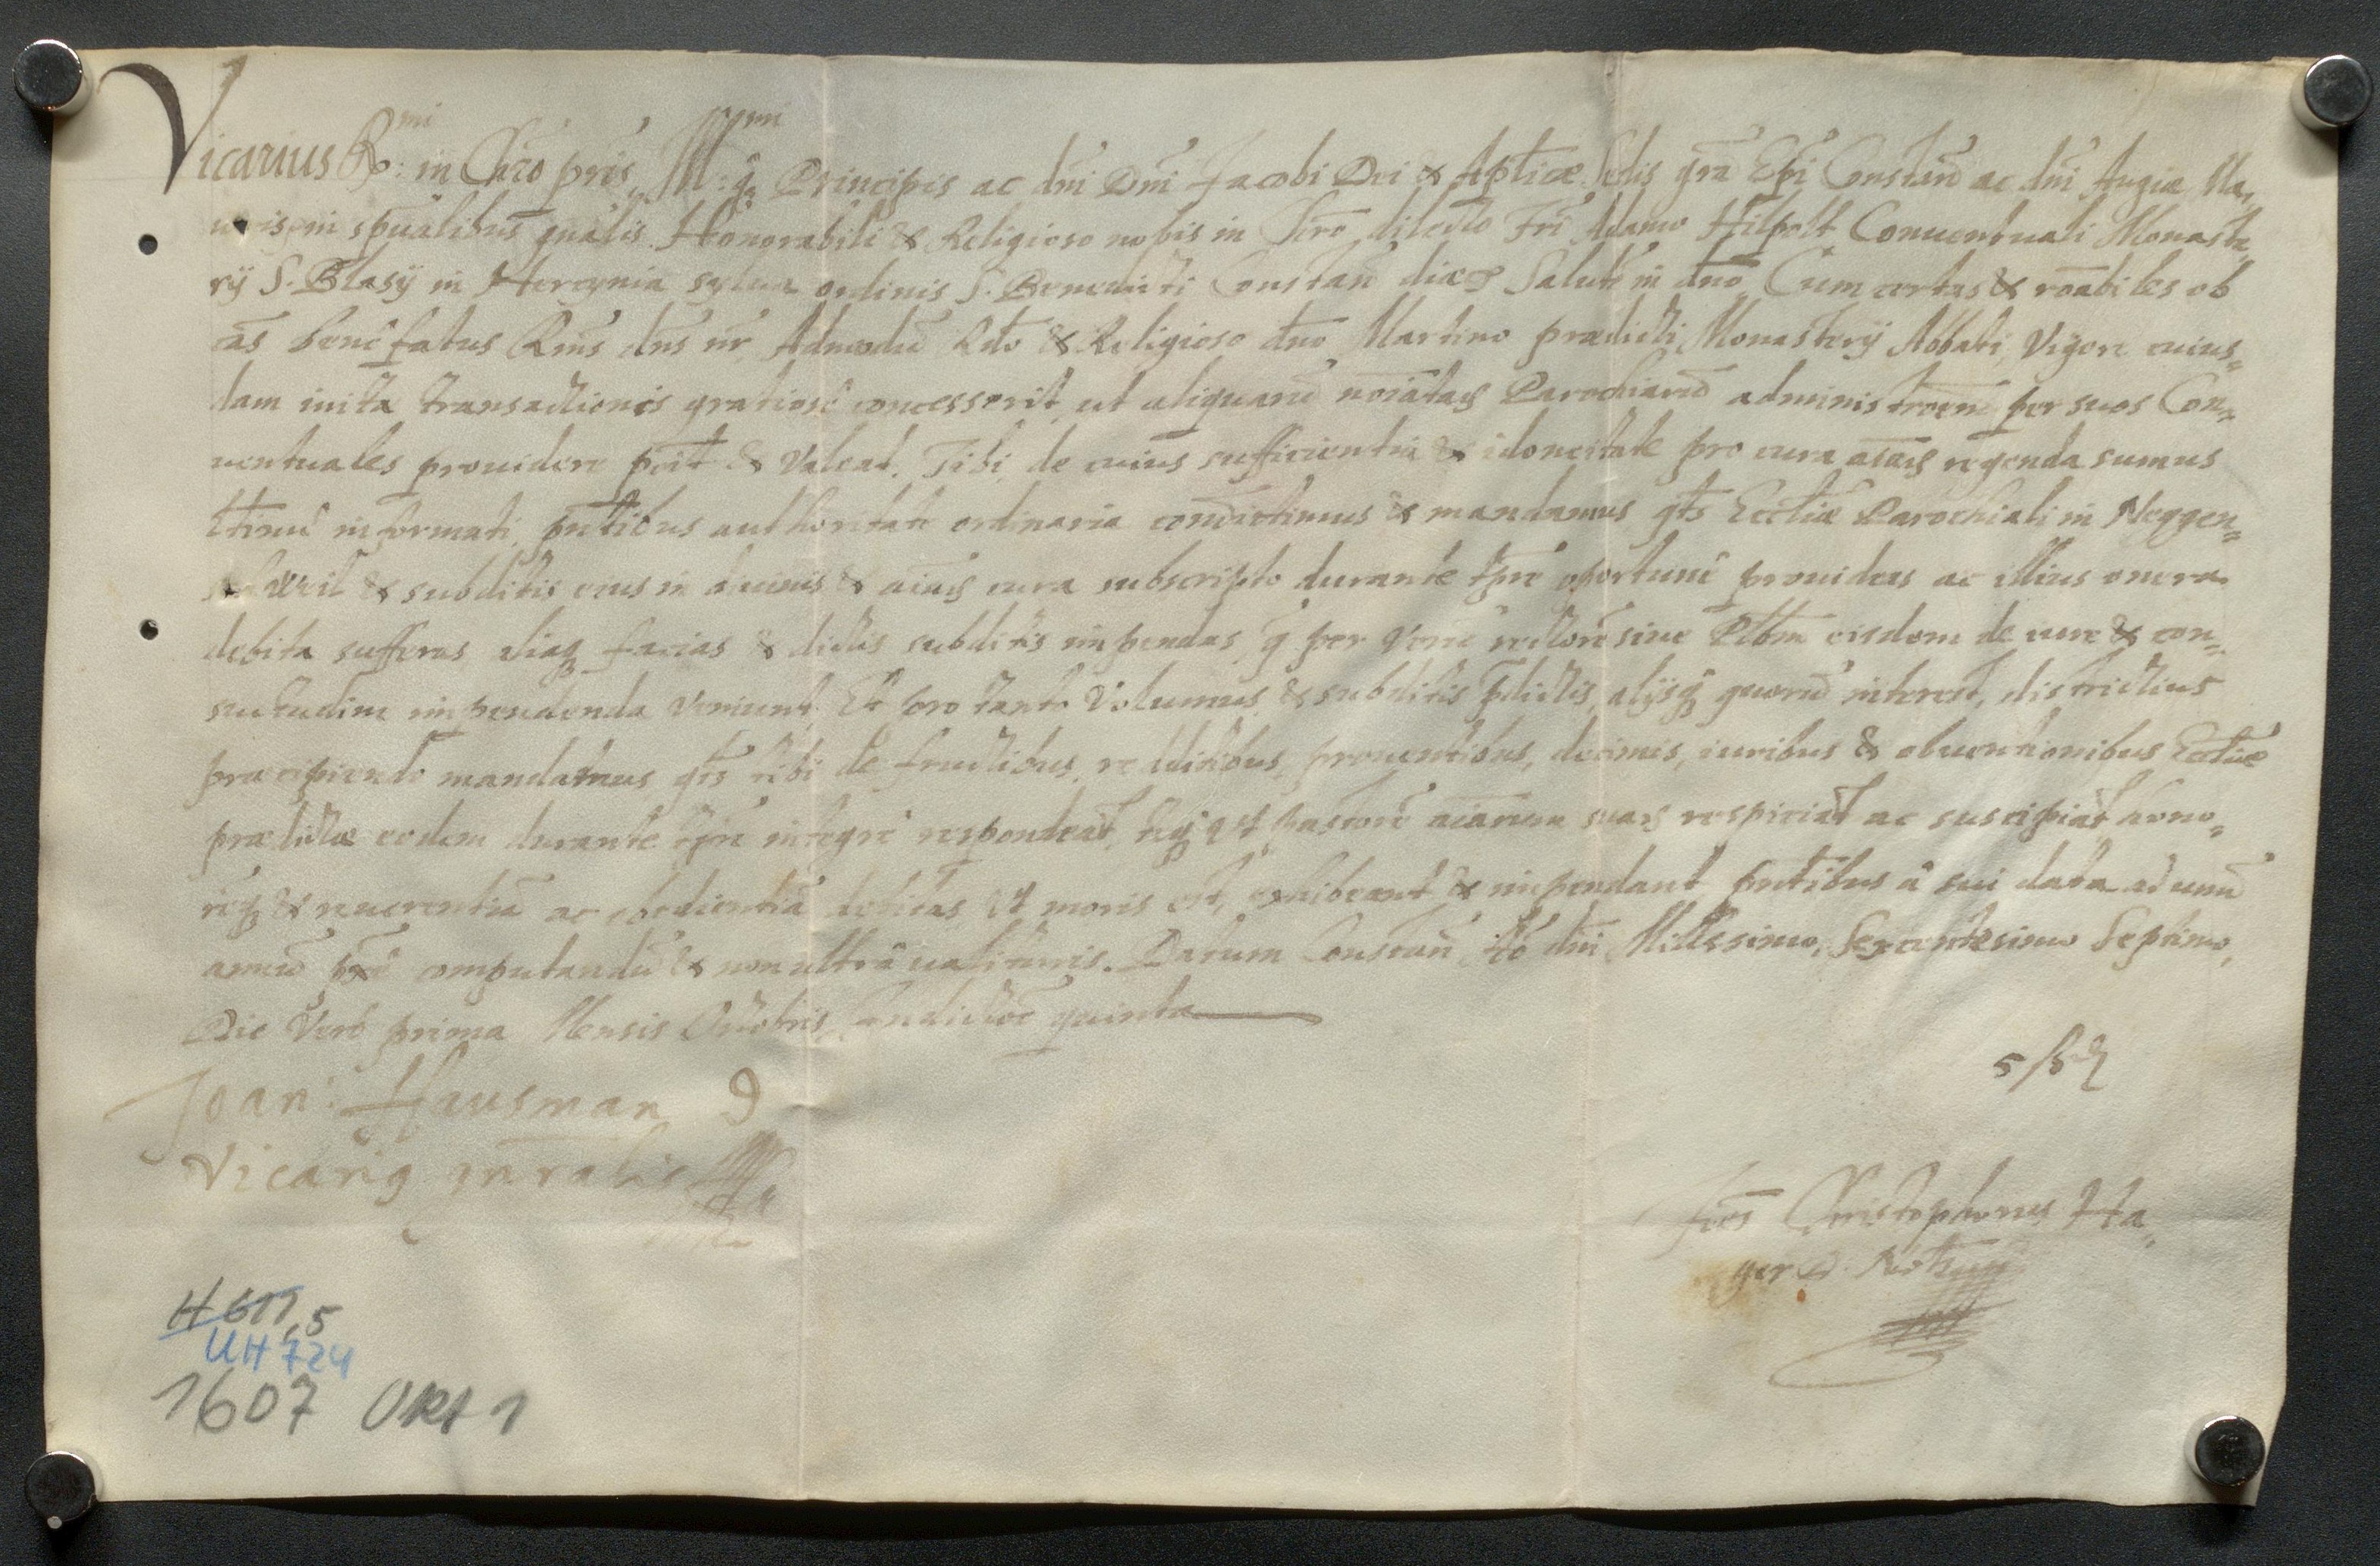 Vicarius R:mi in Chro pris, Ill:mi q̃ Principis ac dni Dni Jacobi Dei & Aplicæ Sedis gra Epi Constan ac dni Augiæ Ma„
ioris, in spualibus gnalis. Honorabili & Religioso nobis in Chro dilecto Fri Adamo Hilpolt Conuentuali Monaste„
rij S. Blasij in Hercynia sylua ordinis S. Benedicti Constan diæc Salute in dno, Cum certas & roabiles ob
cas bene fatus Rms dns nr Admodu Rdo & Religioso dno Martino prædicti Monasterij Abbati, Vigore cuius„
dam initæ transactionis gratiose concesserit, ut aliquaru noiatas Parochiaru administroem per suos Con„
uentuales prouidere poit & Valeat. Tibi, de cuius sufficientia & idoneitate pro cura aiaru regenda sumus
ltime informati, pntibus authoritate ordinaria comittimus & mandamus qts Eccliæ Parochiali in Neggen„
schweil & subditis eius in diuinis & aiaru cura subscripto durante tpre oportune prouideas ac illius onera
debita sufferas aliaq facias & dictis subditis impendas q per Veru rectore siue Plbm eisdem de iure & con„
suetudine impendenda Veniunt. Et pro tanto Volumus & subditis pdictis, alijsq quoru interest, districtius
præcipiendo mandamus qts tibi de fructibus, redditibus, prouentibus, decimis, iuribus & obuentionibus Eccliæ
prædictæ eodem durante tpre integre respondeat, teq vt pastore aiarum suaru respiciat ac suscipiat, hono„
req & reuerentia ac obedientia debitas vt moris est, exhibeant & impendant, pntibus à sui data ad unu
annu pxe computandu & non ultrà ualituris. Datum Constan Ao dni Millesimo, Sexcentesimo Septimo,
Die Verò prima Mensis Octobris, Indictioe quinta
5 ß ₰
Joan: Hausman D
Vicari9 gnralis
Joes Christophorus Ha„
ger D. Notarius
H 611,5
UH 724
1607 Okt 1